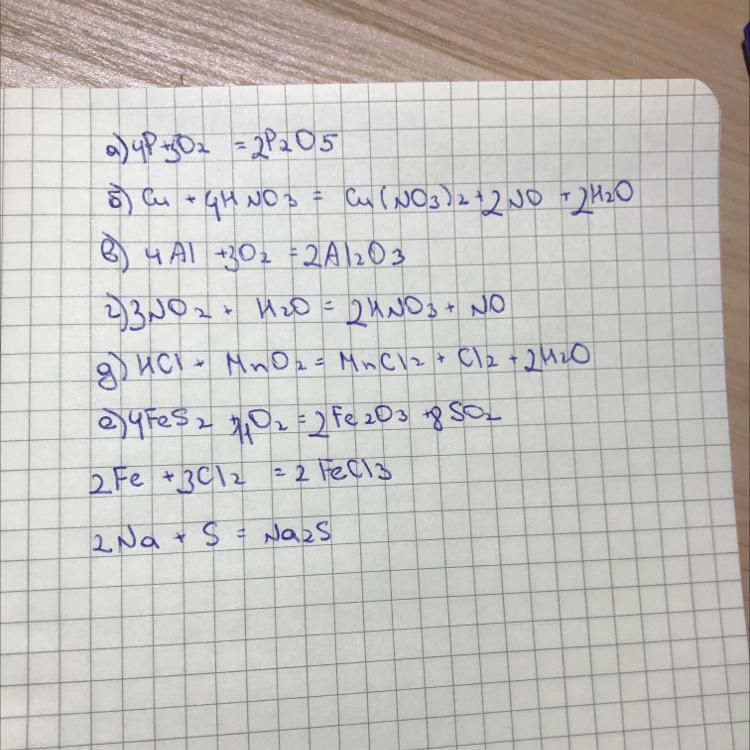 а) 4P+5O2 = 2P2O5
б) Cu + 4HNO3 = Cu(NO3)2+2NO +2H2O
в) 4Al +3O2 = 2Al2O3
г) 3NO2 + H2O = 2HNO3 + NO
д) HCl + MnO2 = MnCl2 + Cl2 + 2H2O
е) 4FeS2 + 11O2 = 2Fe2O3 +8SO2
2Fe +3Cl2 = 2FeCl3
2Na + S = Na2S